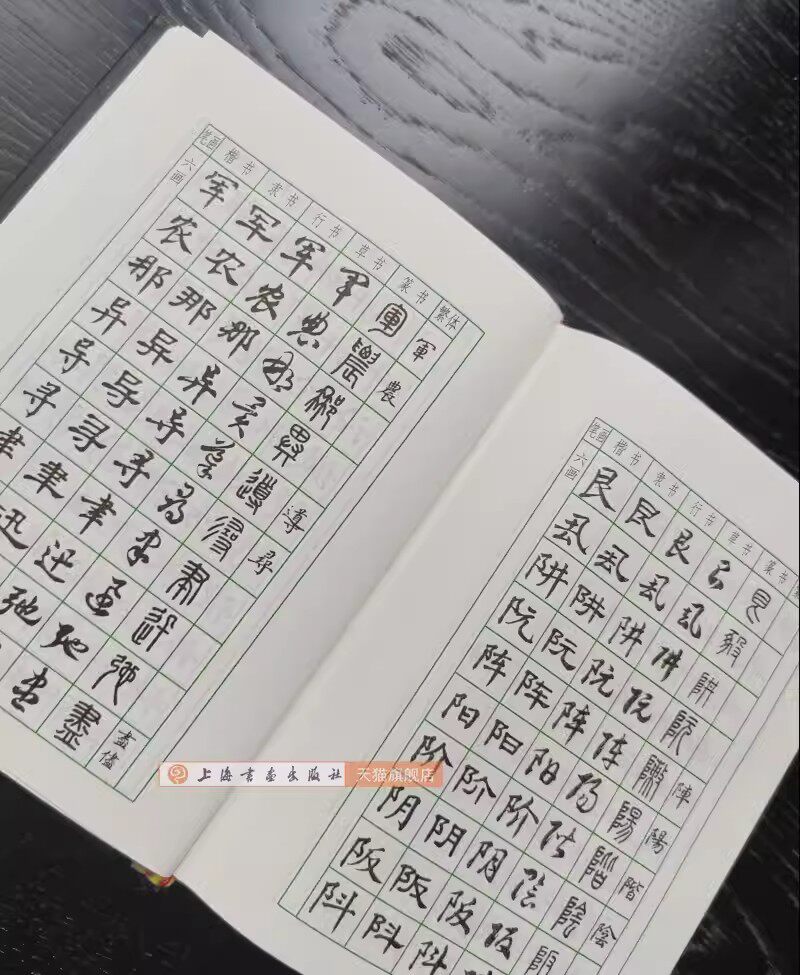 笔画 楷书 隶书 行书 草书 篆书 繁体
六画 军 军 军 军 軍 軍
农 农 农 农 農 農
那 那 那 那 那
异 异 异 异 異
导 导 导 导 導 導
寻 寻 寻 寻 尋 尋
聿 聿 聿 聿 聿
迅 迅 迅 迅
弛 弛 弛
盡 盡 儘
笔画 楷书 隶书 行书 草书 篆书
六画 艮 艮 艮 艮 艮
阱 阱 阱 阱 阱
阮 阮 阮 阮 阮
阵 阵 阵 阵 陣 陣
阳 阳 阳 阳 陽 陽
阶 阶 阶 阶 階 階
阴 阴 阴 阴 陰 陰
阪 阪 阪 阪 阪
阧 阧 阧 阧
上海书画出版社 天猫旗舰店